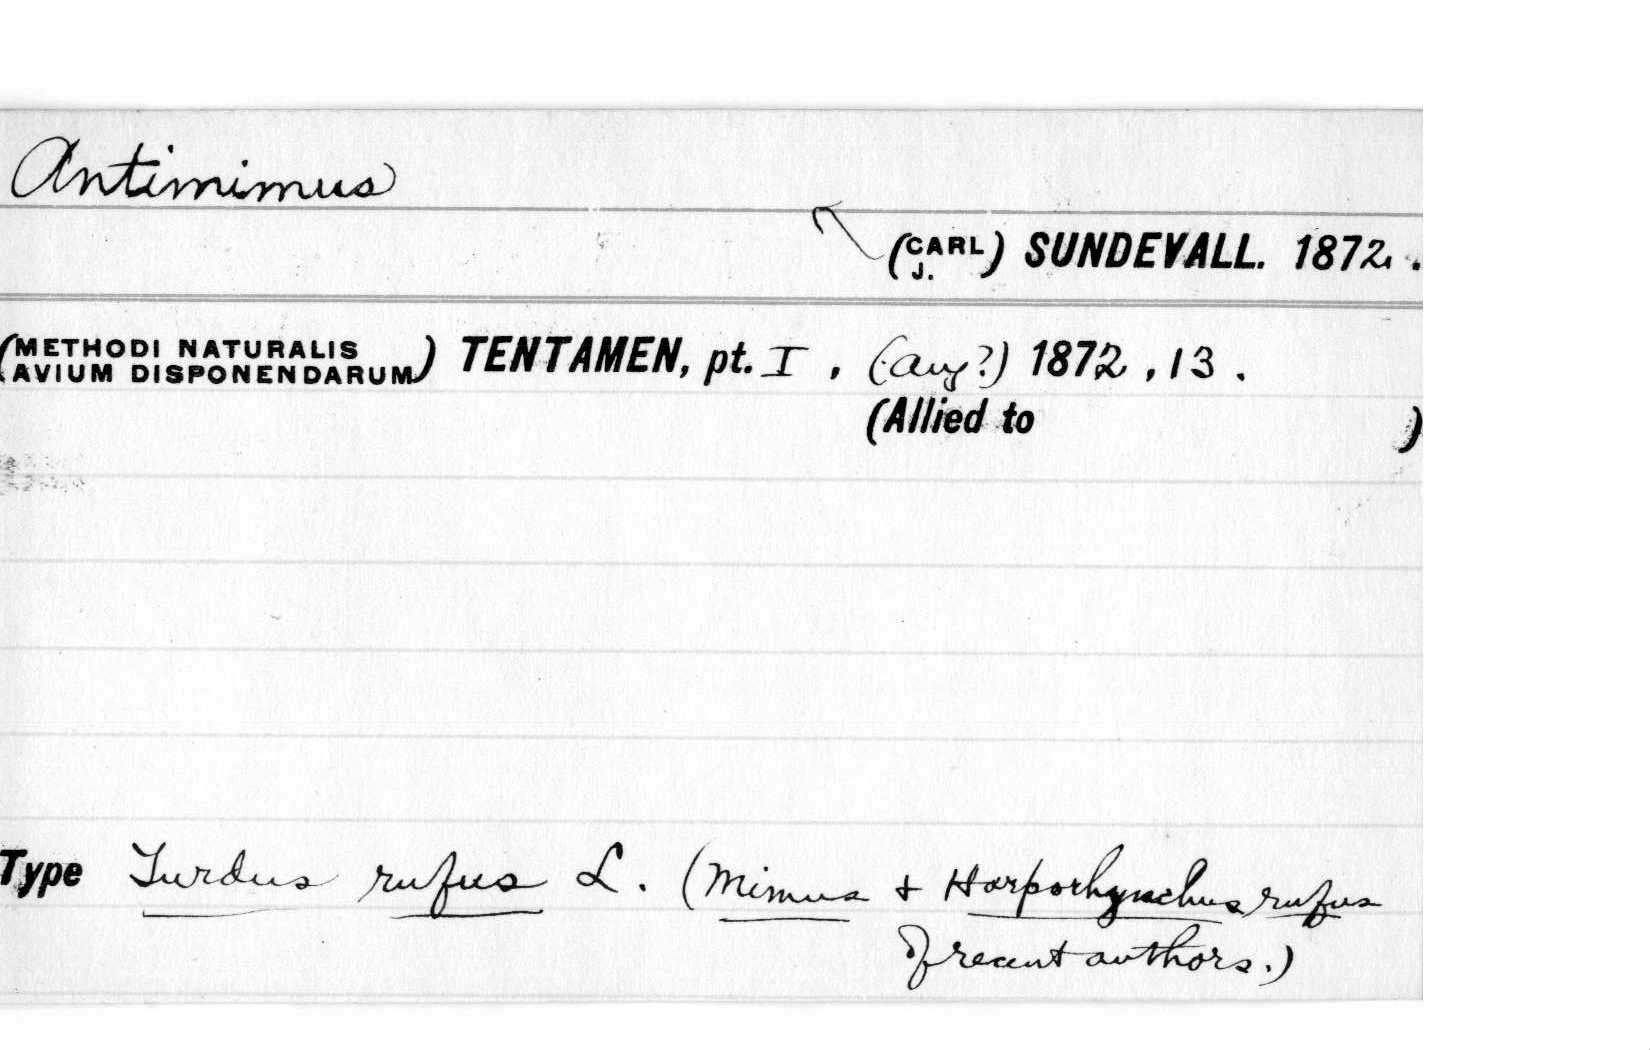 Antimimus
(CARL J.) SUNDEVALL. 1872.
(METHODI NATURALIS AVIUM DISPONENDARUM) TENTAMEN, pt. I, (Aug?) 1872, 13.
(Allied to )
Type Turdus rufus L. (Mimus + Harporhynchus rufus
Of recent authors.)